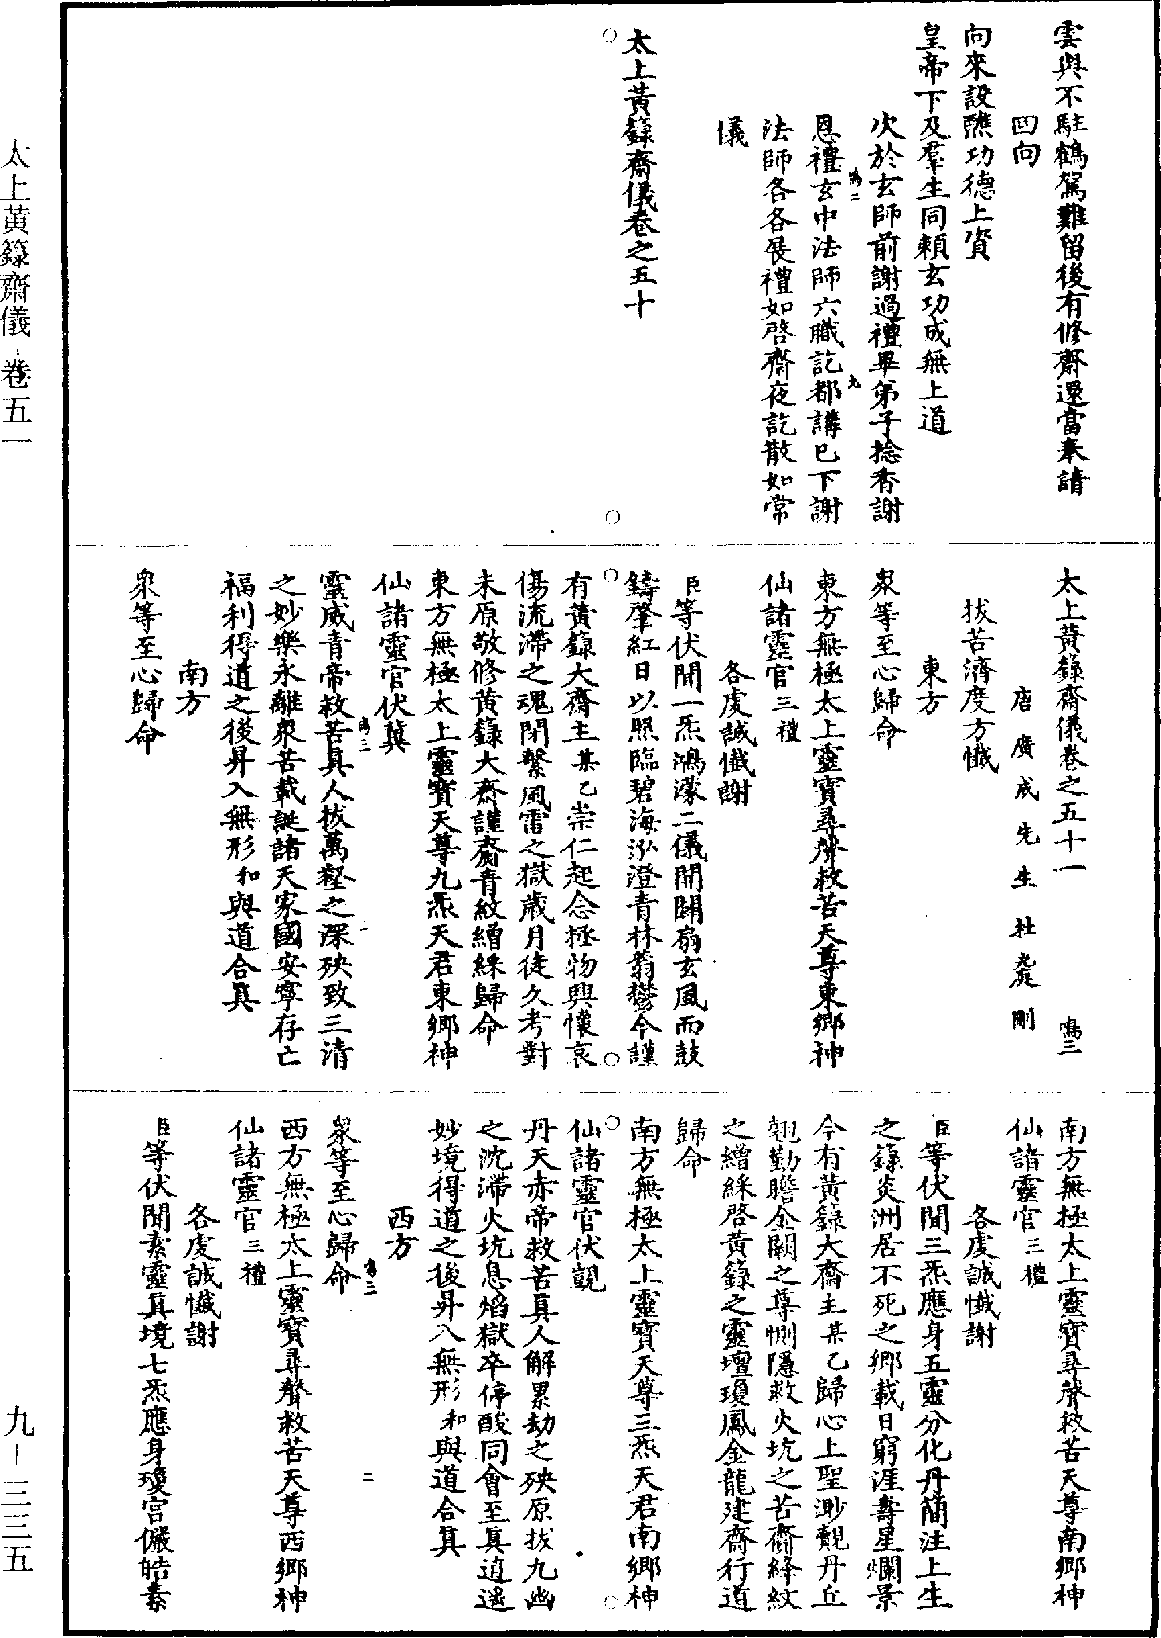 雲與不駐鶴駕難留後有修齋還當奉請
回向
向來設醮功德上資
皇帝下及羣生同賴玄功成無上道
次於玄師前謝過禮畢弟子捻香謝
恩禮玄中法師六職訖都講已下謝
法師各各展禮如啓齋夜訖散如常
儀
太上黃籙齋儀卷之五十
太上黃籙齋儀卷之五十一
唐廣成先生杜光庭刪
拔苦濟度方懺
東方
衆等至心歸命
東方無極太上靈寶尋聲救苦天尊東鄉神
仙諸靈官三禮
各虔誠懺謝
臣等伏聞一炁鴻濛二儀開闢扇玄風而鼓
鑄肇紅日以照臨碧海泓澄青林蓊鬱今謹
有黃籙大齋主某乙崇仁起念拯物興懷哀
傷流滯之魂閉繫風雷之獄歲月徒久考對
未原敬修黃籙大齋謹齎青紋繒綵歸命
東方無極太上靈寶天尊九炁天君東鄉神
仙諸靈官伏冀
靈威青帝救苦真人拔萬壑之深殃致三清
之妙樂永離衆苦載誕諸天家國安寧存亡
福利得道之後昇入無形和與道合真
南方
衆等至心歸命
南方無極太上靈寶尋聲救苦天尊南鄉神
仙諸靈官三禮
各虔誠懺謝
臣等伏聞三炁應身五靈分化丹簡注上生
之籙炎洲居不死之鄉載日窮涯壽星爛景
今有黃籙大齋主某乙歸心上聖渺覿丹丘
翹勤瞻金闕之尊惻隱救火坑之苦齎絳紋
之繒綵啓黃籙之靈壇瓊鳳金龍建齋行道
歸命
南方無極太上靈寶天尊三炁天君南鄉神
仙諸靈官伏覬
丹天赤帝救苦真人解累劫之殃原拔九幽
之沈滯火坑息焰獄卒停酸同會至真逍遥
妙境得道之後昇入無形和與道合真
西方
衆等至心歸命
西方無極太上靈寶尋聲救苦天尊西鄉神
仙諸靈官三禮
各虔誠懺謝
臣等伏聞素靈真境七炁應身瓊宫儼皓素
太上黃籙齋儀 卷五一
九—三三五